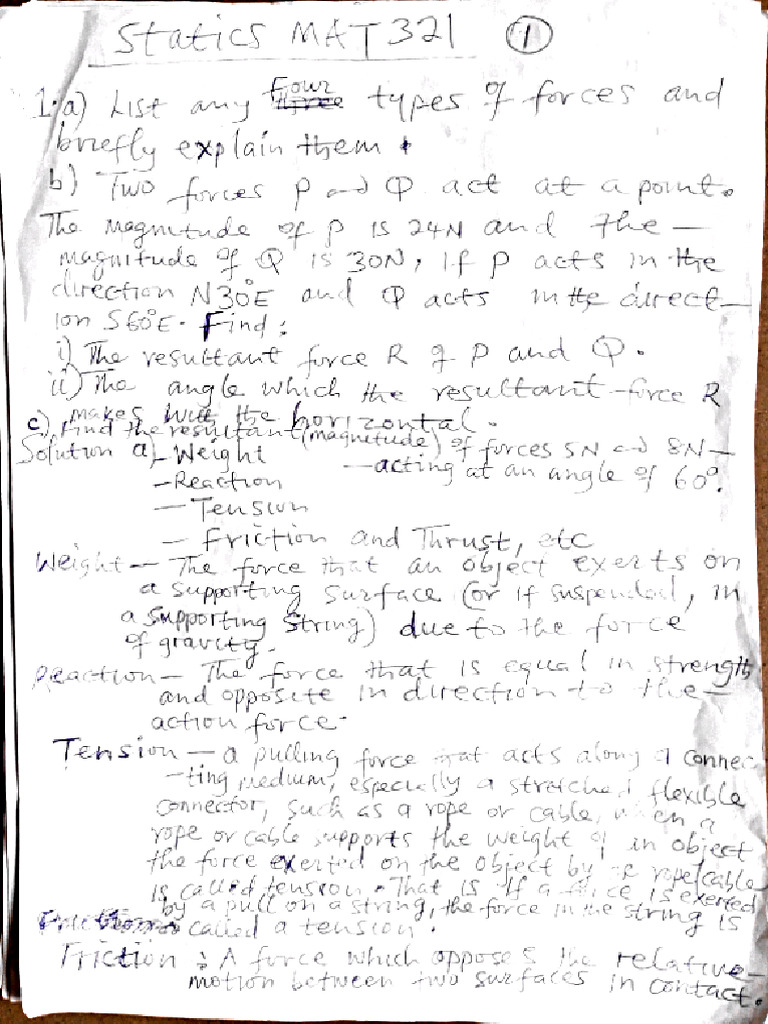 Statics MAT321 ①
1.a) List any Four types of forces and
briefly explain them.
b) Two forces P and Q act at a point.
The magnitude of P is 24N and the —
magnitude of Q is 30N, If P acts in the
direction N30°E and Q acts in the direct—
ion S60°E. Find:
i) The resultant force R of P and Q.
ii) The angle which the resultant force R
makes with the horizontal.
c) Find the resultant (magnitude) of forces 5N and 8N —
—acting at an angle of 60°.
Solution a) — Weight
— Reaction
— Tension
— Friction and Thrust, etc
Weight — The force that an object exerts on
a supporting surface (or if suspended, in
a supporting string) due to the force
of gravity.
Reaction — The force that is equal in strength
and opposite in direction to the —
action force.
Tension — a pulling force that acts along a connec
-ting medium, especially a stretched flexible
connector, such as a rope or cable, when a
rope or cable supports the weight of an object
the force exerted on the object by the rope/cable
is called tension. That is If a force is exerted
by a pull on a string, the force in the string is
called a tension.
Friction : A force which opposes the relative —
motion between two surfaces in contact.